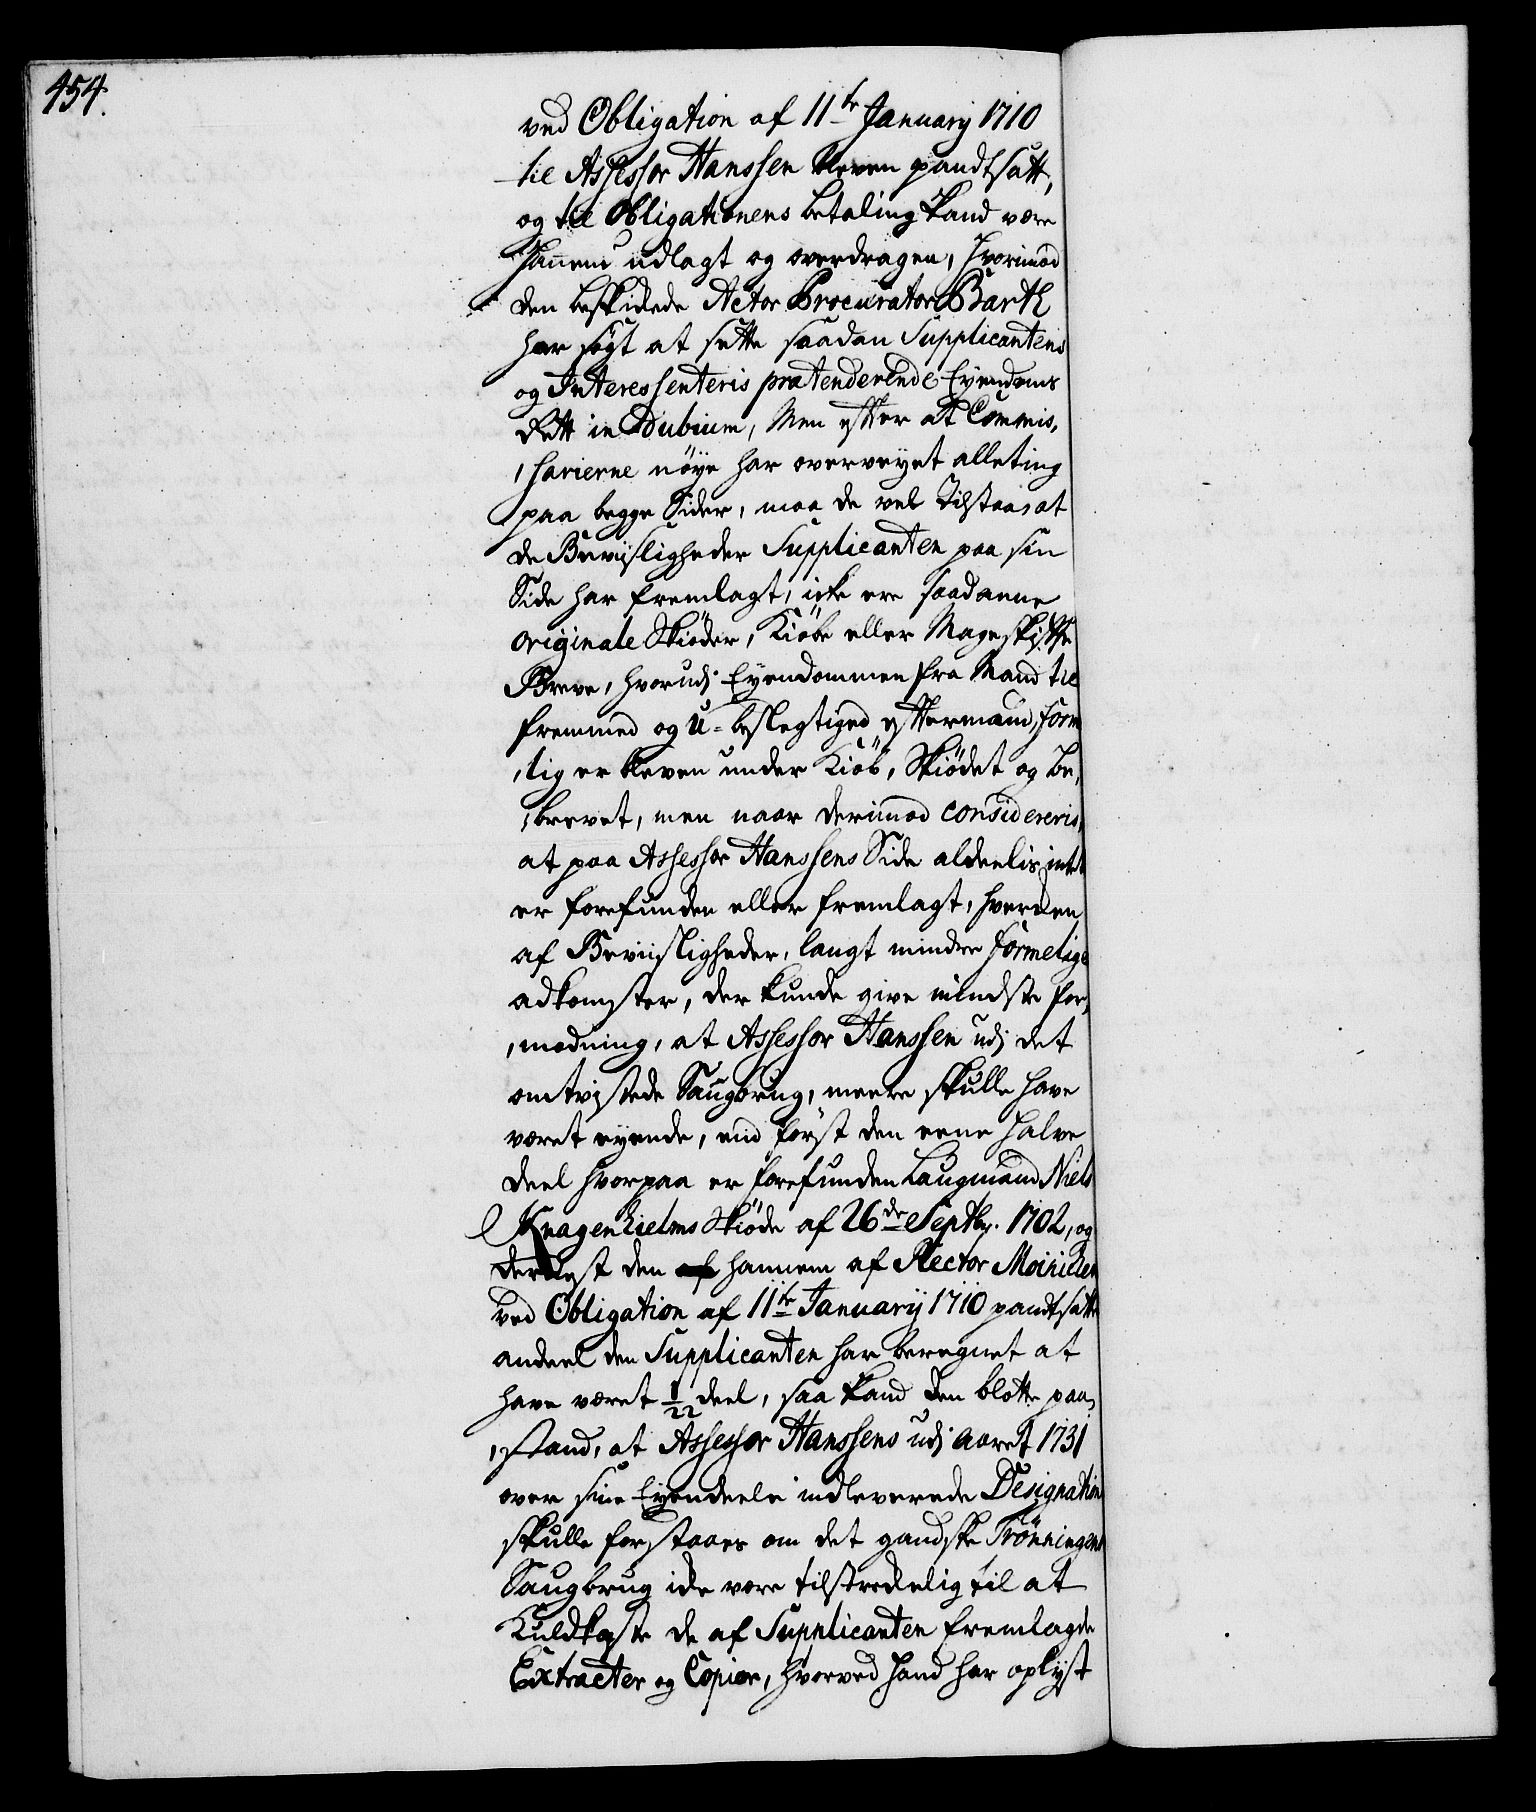 454.
ved Obligation af 11te January 1710
til Assessor Hanssen bleven pandtsatt,
og til Obligationens betaling kand være
hannem udlagt og overdragen, hvorimod
den beskikede Actor Procurator Barth
har søgt at sette saadan Supplicantens
og Interessenteris prætenderende Eyendoms
Rett in Dubium, Men efter at Commis,
,sarierne nøye har overveyet alleting
paa begge Sider, maa de vel tilstaa, at
de Beviisligheder Supplicanten paa sin
Side har fremlagt, icke ere saadanne
originale Skiöder, Kiöbe eller Mageskifte
Breve, hvorudj Eyendommen fra Mand til
fremmed og U-beslegtiged eftermand, form
,lig er bleven under Kiöb, Skiödet og be,
,brevet, men naar derimod considereris,
at paa Assessor Hanssens Side aldeelis intet
er forefunden eller fremlagt, hverken
af Beviisligheder, langt mindre formelige
adkomster, der kunde give mindste for,
,modning, at Assessor Hanssen udj det
omtvistede Saugbrug, meere skulle have
været eyende, end først den eene halve
deel hvorpaa er forefunden Laugmand Niels
Knagenhielms Skiöde af 26de Septbr. 1702, og
dernest den af hannem af Rector
ved Obligation af 11te Januarij 1710 pandtsatte
andeel den Supplicanten har beregnet at
have været 1/22 deel, saa kand den blotte paa,
,stand, at Assessor Hanssens udj Aaret 1731
over sine Eyendeele indleverede Designation
skulle forstaaes om det gandske Trönningens
Saugbrug icke være tilstrekkelig til at
Kuldkaste de af Supplicanten fremlagde
Extracter og Copier, hvorved hand har oplyst